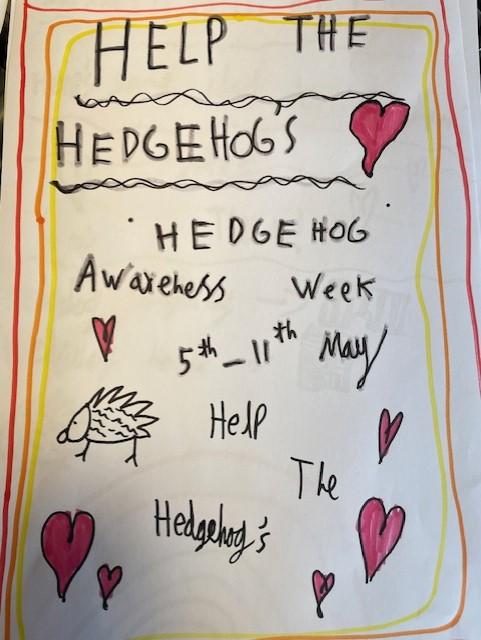 HELP THE
HEDGEHOG'S
HEDGEHOG
Awareness Week
5th - 11th May
Help
The
Hedgehog's